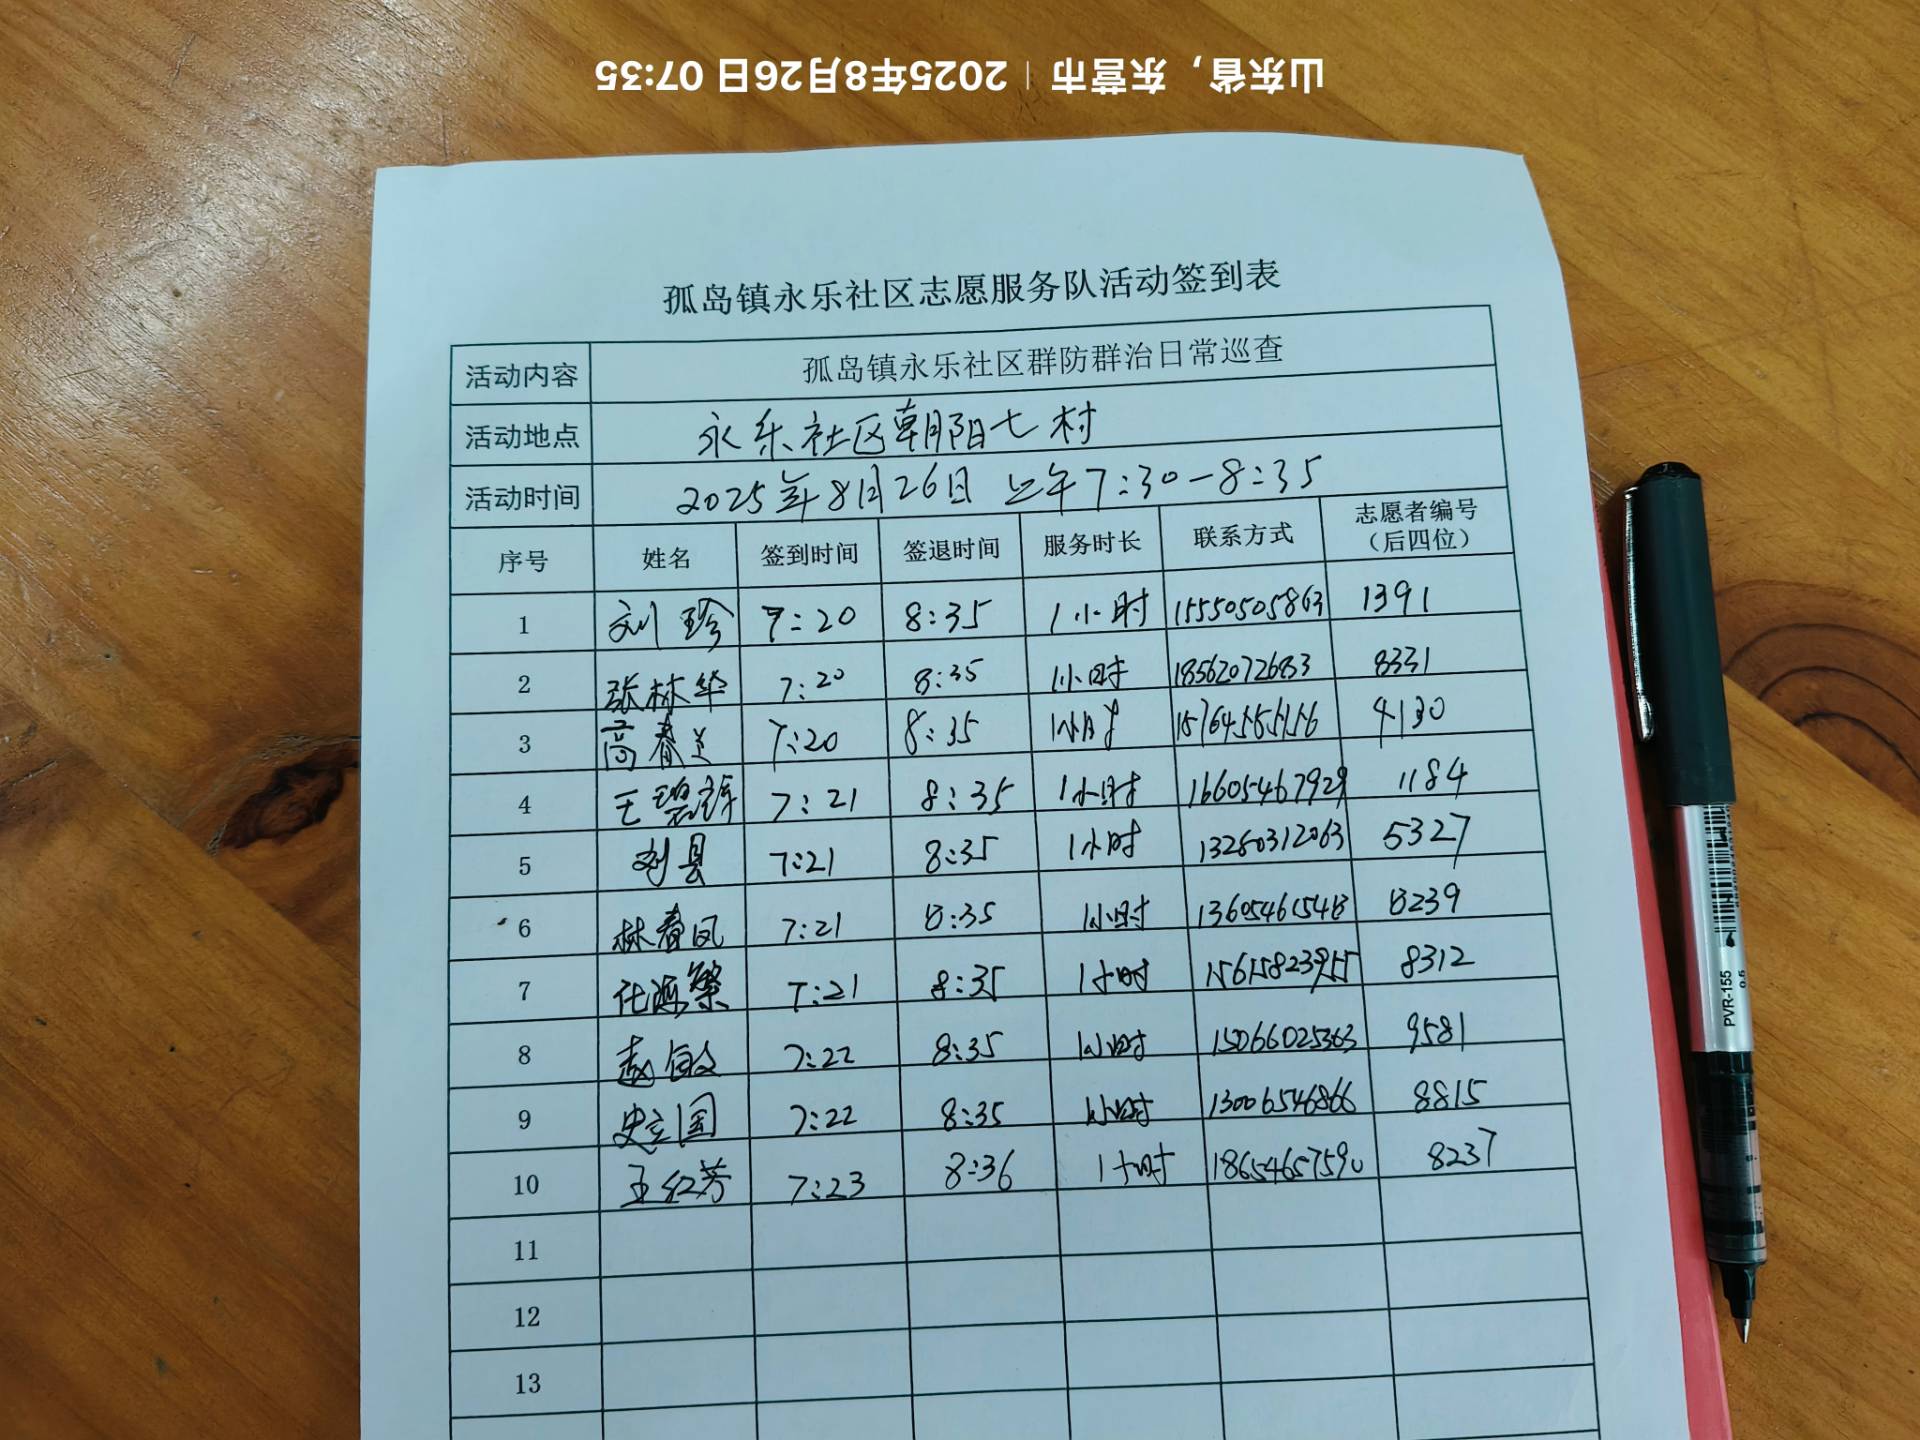 山东省，东营市 | 2025年8月26日 07:35
孤岛镇永乐社区志愿服务队活动签到表
活动内容 孤岛镇永乐社区群防群治日常巡查
活动地点 永乐社区朝阳七村
活动时间 2025年8月26日 上午7:30-8:35
序号 姓名 签到时间 签退时间 服务时长 联系方式 志愿者编号（后四位）
1 刘珍 7:20 8:35 1小时 15550505863 1391
2 张林华 7:20 8:35 1小时 18562072683 8331
3 高春兰 7:20 8:35 1小时 15764555156 4130
4 王 7:21 8:35 1小时 16605467929 1184
5 刘县 7:21 8:35 1小时 13280312063 5327
6 林春凤 7:21 8:35 1小时 13605461548 8239
7 7:21 8:35 1小时 15615823955 8312
8 赵 7:22 8:35 1小时 15066025363 9581
9 史立国 7:22 8:35 1小时 13006546866 8815
10 王红芳 7:23 8:36 1小时 18654657590 8237
11
12
13
PVR-155
0.5